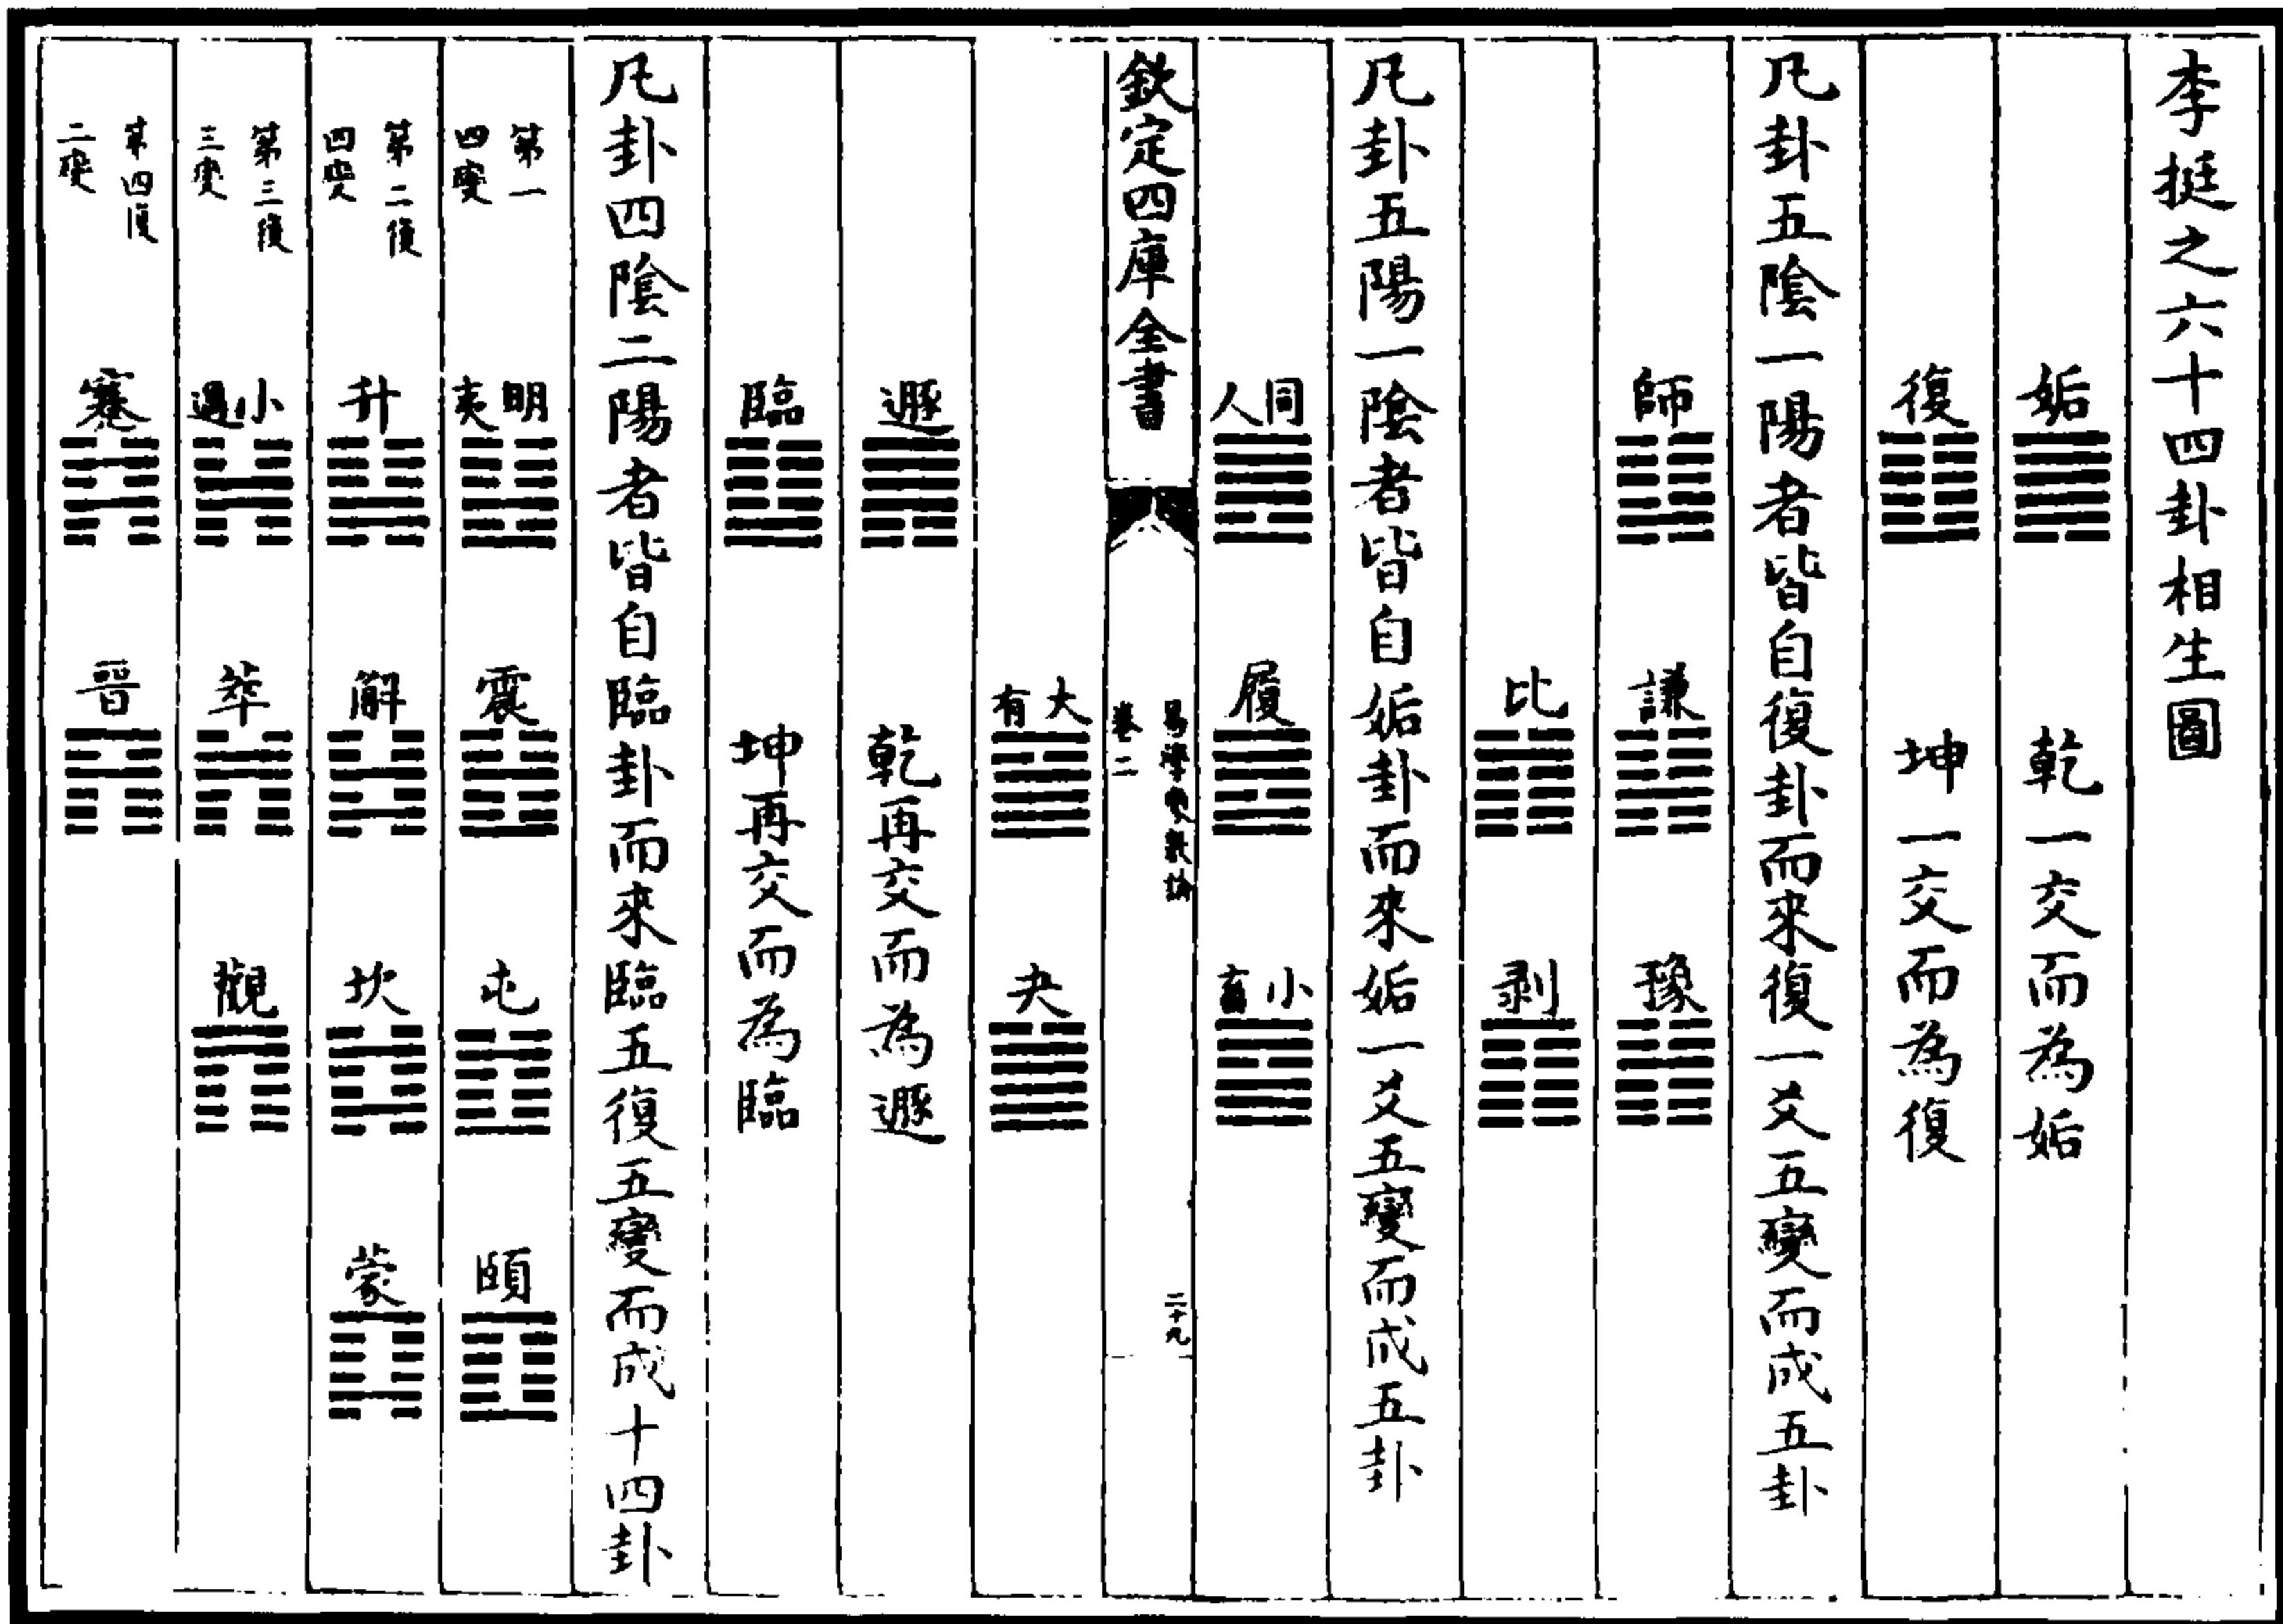 李挺之六十四卦相生圖
姤 乾一交而為姤
復 坤一交而為復
凡卦五陰一陽者皆自復卦而來復一爻五變而成五卦
師 謙 豫
比 剥
凡卦五陽一陰者皆自姤卦而來姤一爻五變而成五卦
同人 履 小畜
欽定四庫全書
易學象數論
卷二
二十九
大有 夬
遯 乾再交而為遯
臨 坤再交而為臨
凡卦四陰二陽者皆自臨卦而來臨五復五變而成十四卦
第一四變 明夷 震 屯 頤
第二復四變 升 解 坎 蒙
第三復三變 小過 萃 觀
第四復二變 蹇 晉